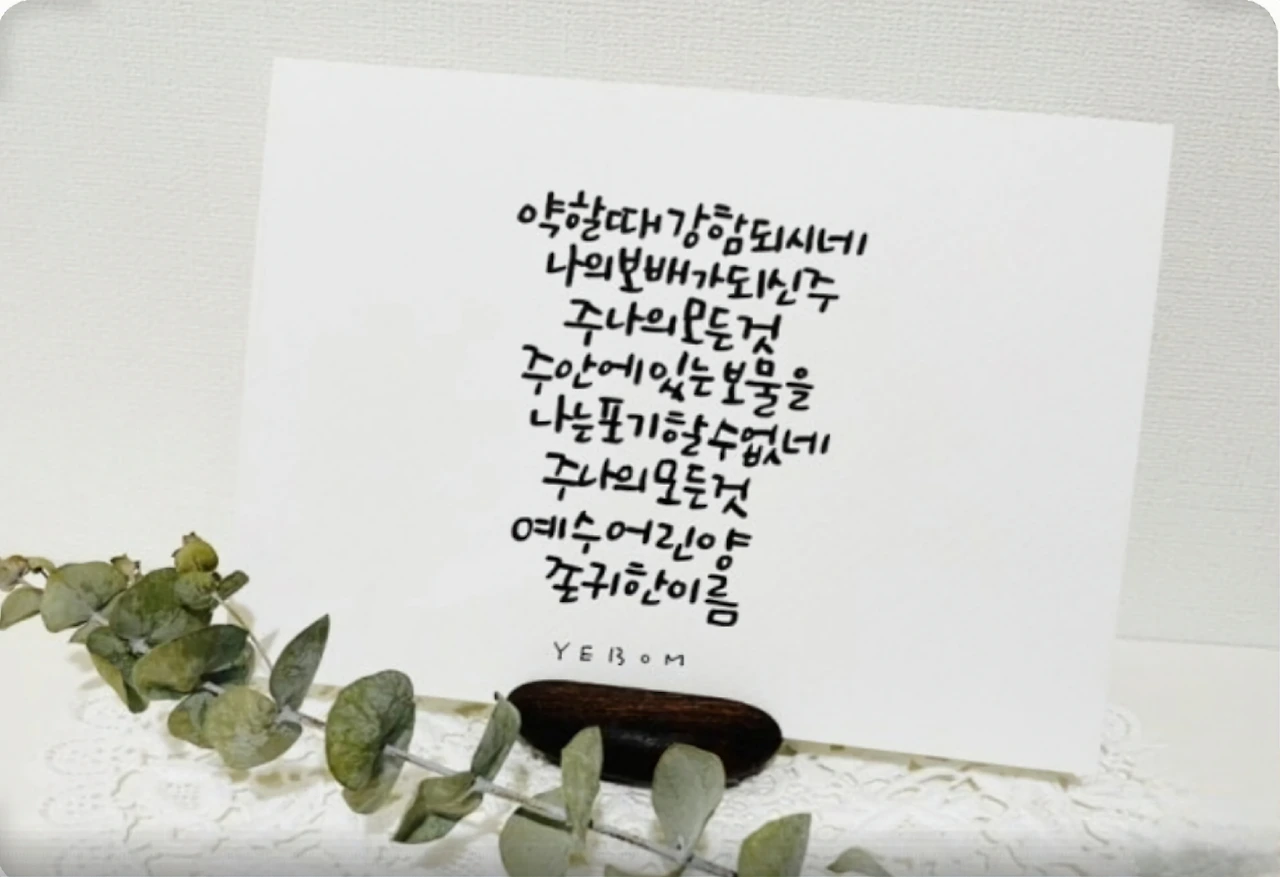 약할때 강함되시네
나의보배가되신주
주나의모든것
주안에있는보물을
나는포기할수없네
주나의모든것
예수어린양
존귀한이름
YEBOM